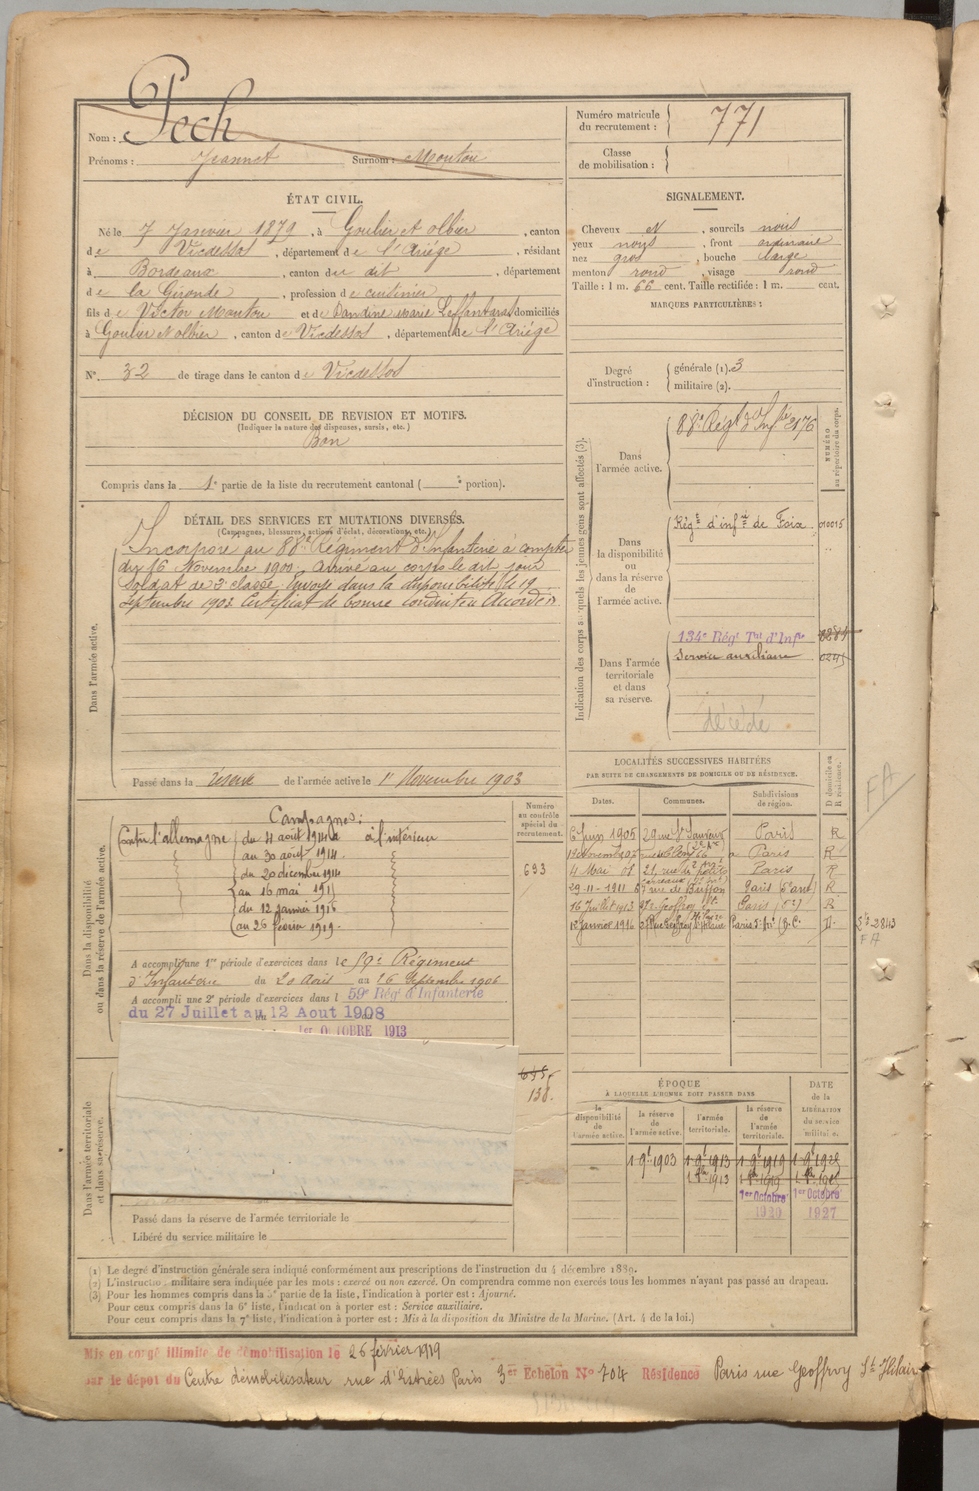 Pech
Nom :
Prénoms : Jeannet Surnom : Mouton
Numéro matricule du recrutement : 771
Classe de mobilisation :
ÉTAT CIVIL.
Né le 7 Janvier 1879, à Goulier et Olbier, canton
de Vicdessos, département de l'Ariége, résidant
à Bordeaux, canton du dit, département
de la Gironde, profession de cuisinier
fils de Victor Mouton et de Dandine Marie domiciliés
à Goulier et olbier, canton de Vicdessos, département de l'Ariége
N° 32 de tirage dans le canton de Vicdessos
SIGNALEMENT.
Cheveux N, sourcils noirs
yeux noirs, front ordinaire
nez gros, bouche large
menton rond, visage rond
Taille : 1 m. 66 cent. Taille rectifiée : 1 m. cent.
MARQUES PARTICULIÈRES :
Degré d'instruction : générale (1). 3
militaire (2).
DÉCISION DU CONSEIL DE REVISION ET MOTIFS.
(Indiquer la nature des dispenses, sursis, etc.)
Bon
Compris dans la 1e partie de la liste du recrutement cantonal ( portion).
DÉTAIL DES SERVICES ET MUTATIONS DIVERSES.
(Campagnes, blessures, actions d'éclat, décorations, etc.)
Dans l'armée active.
Incorporé au 88e Régiment d'Infanterie à compter
du 16 Novembre 1900. Arrivé au corps le dit jour
Soldat de 2e classe. Envoyé dans la disponibilité le 19
Septembre 1903 Certificat de bonne conduite Accordé
Passé dans la réserve de l'armée active le 1er Novembre 1903
Indication des corps auxquels les jeunes gens sont affectés (3).
NUMÉRO au répertoire du corps.
Dans l'armée active.
88e Régt d'Infie 2176
Dans la disponibilité ou dans la réserve de l'armée active.
Régt d'infie de Foix 010015
Dans l'armée territoriale et dans sa réserve.
134e Régt Tal d'Infie
Service auxiliaire 0245
décédé
LOCALITÉS SUCCESSIVES HABITÉES
PAR SUITE DE CHANGEMENTS DE DOMICILE OU DE RÉSIDENCE.
Dates. Communes. Subdivisions de région. D domicile ou R résidence.
6 Juin 1905 29 rue St Sauveur Paris R
Paris R
4 Mai 08 Paris R
29-11-1911 rue de Buffon Paris R
16 Juillet 1913 Geoffroy St Paris R
12 janvier 1916 Paris D.
FA
2843
FA
Dans la disponibilité ou dans la réserve de l'armée active.
Numéro au contrôle spécial du recrutement.
693
Campagnes :
Contre l'allemagne du 4 août 1914 à l'intérieur
au 30 août 1914.
du 20 décembre 1914
au 16 mai 1915
du 12 janvier 1916
au 26 février 1919.
A accompli une 1re période d'exercices dans le 59e Régiment
d'Infanterie du 20 Août au 16 Septembre 1906
A accompli une 2e période d'exercices dans l 59e Régt d'Infanterie
du 27 Juillet au 12 Aout 1908
1er OCTOBRE 1913
138.
Dans l'armée territoriale et dans sa réserve.
Passé dans la réserve de l'armée territoriale le
Libéré du service militaire le
ÉPOQUE
À LAQUELLE L'HOMME DOIT PASSER DANS
DATE de la LIBÉRATION du service militaire.
la disponibilité de l'armée active. la réserve de l'armée active. l'armée territoriale. la réserve de l'armée territoriale.
1 9e 1903 1 9e 1913 1 9e 1919
1er Octobre 1er Octobre
1920 1927
(1) Le degré d'instruction générale sera indiqué conformément aux prescriptions de l'instruction du 4 décembre 1889.
(2) L'instruction militaire sera indiquée par les mots : exercé ou non exercé. On comprendra comme non exercés tous les hommes n'ayant pas passé au drapeau.
(3) Pour les hommes compris dans la 5e partie de la liste, l'indication à porter est : Ajourné.
Pour ceux compris dans la 6e liste, l'indication à porter est : Service auxiliaire.
Pour ceux compris dans la 7e liste, l'indication à porter est : Mis à la disposition du Ministre de la Marine. (Art. 4 de la loi.)
Mis en congé illimité de démobilisation le 26 février 1919
par le dépôt du Centre démobilisateur rue d'Estrées Paris 3er Echelon N° 704 Résidence Paris rue Geoffroy St Hilaire